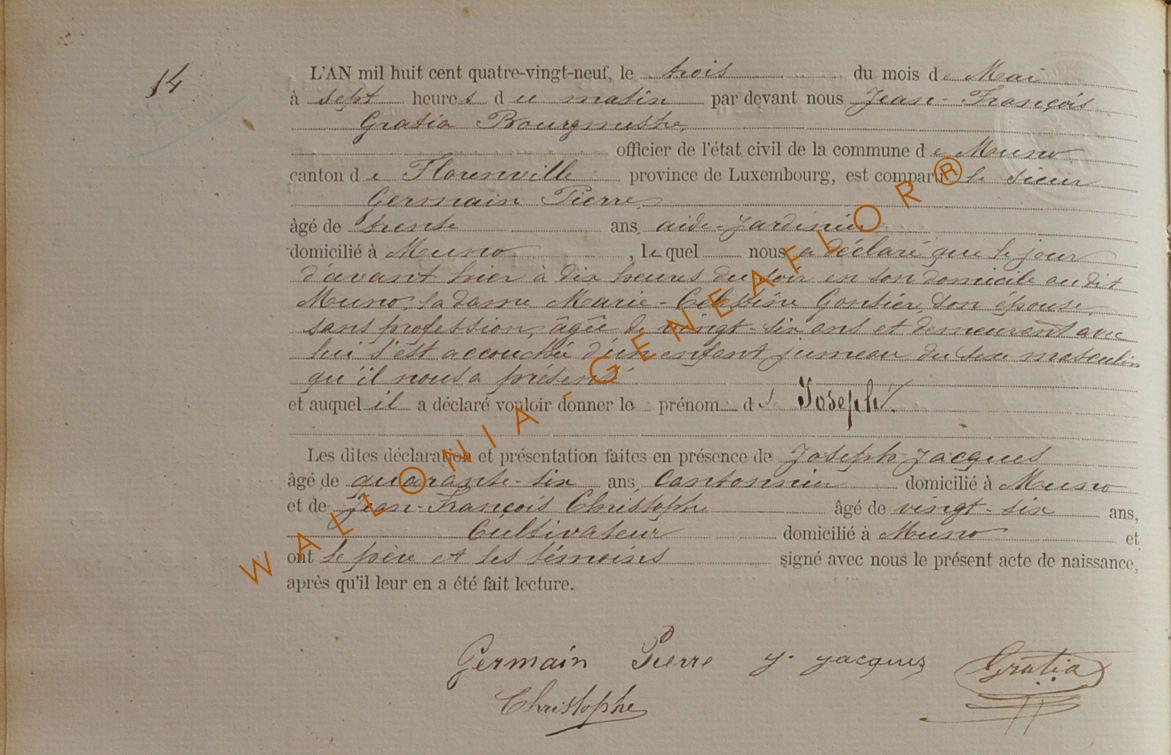 14
L'AN mil huit cent quatre-vingt-neuf, le trois du mois de Mai
à sept heures du matin par devant nous Jean-François
Gratia Bourgmestre,
officier de l'état civil de la commune de Muno
canton de Florenville province de Luxembourg, est comparu le sieur
Germain Pierre,
âgé de trente ans, aide-jardinier
domicilié à Muno, lequel nous a déclaré que le jour
d'avant hier à dix heures du soir en son domicile au dit
Muno, la dame Marie- Gontier, son épouse,
sans profession, âgée de vingt-six ans et demeurent avec
lui s'est accouchée d'un enfant jumeau du sexe masculin
qu'il nous a présenté
et auquel il a déclaré vouloir donner le prénom de Joseph.
Les dites déclaration et présentation faites en présence de Joseph Jacques
âgé de quarante-six ans, Cantonnier domicilié à Muno
et de Jean-François Christophe âgé de vingt-six ans,
Cultivateur domicilié à Muno et
ont le père et les témoins signé avec nous le présent acte de naissance,
après qu'il leur en a été fait lecture.
Germain Pierre J. Jacques Gratia
Christophe
WALLONIA - GENEAFLOR®